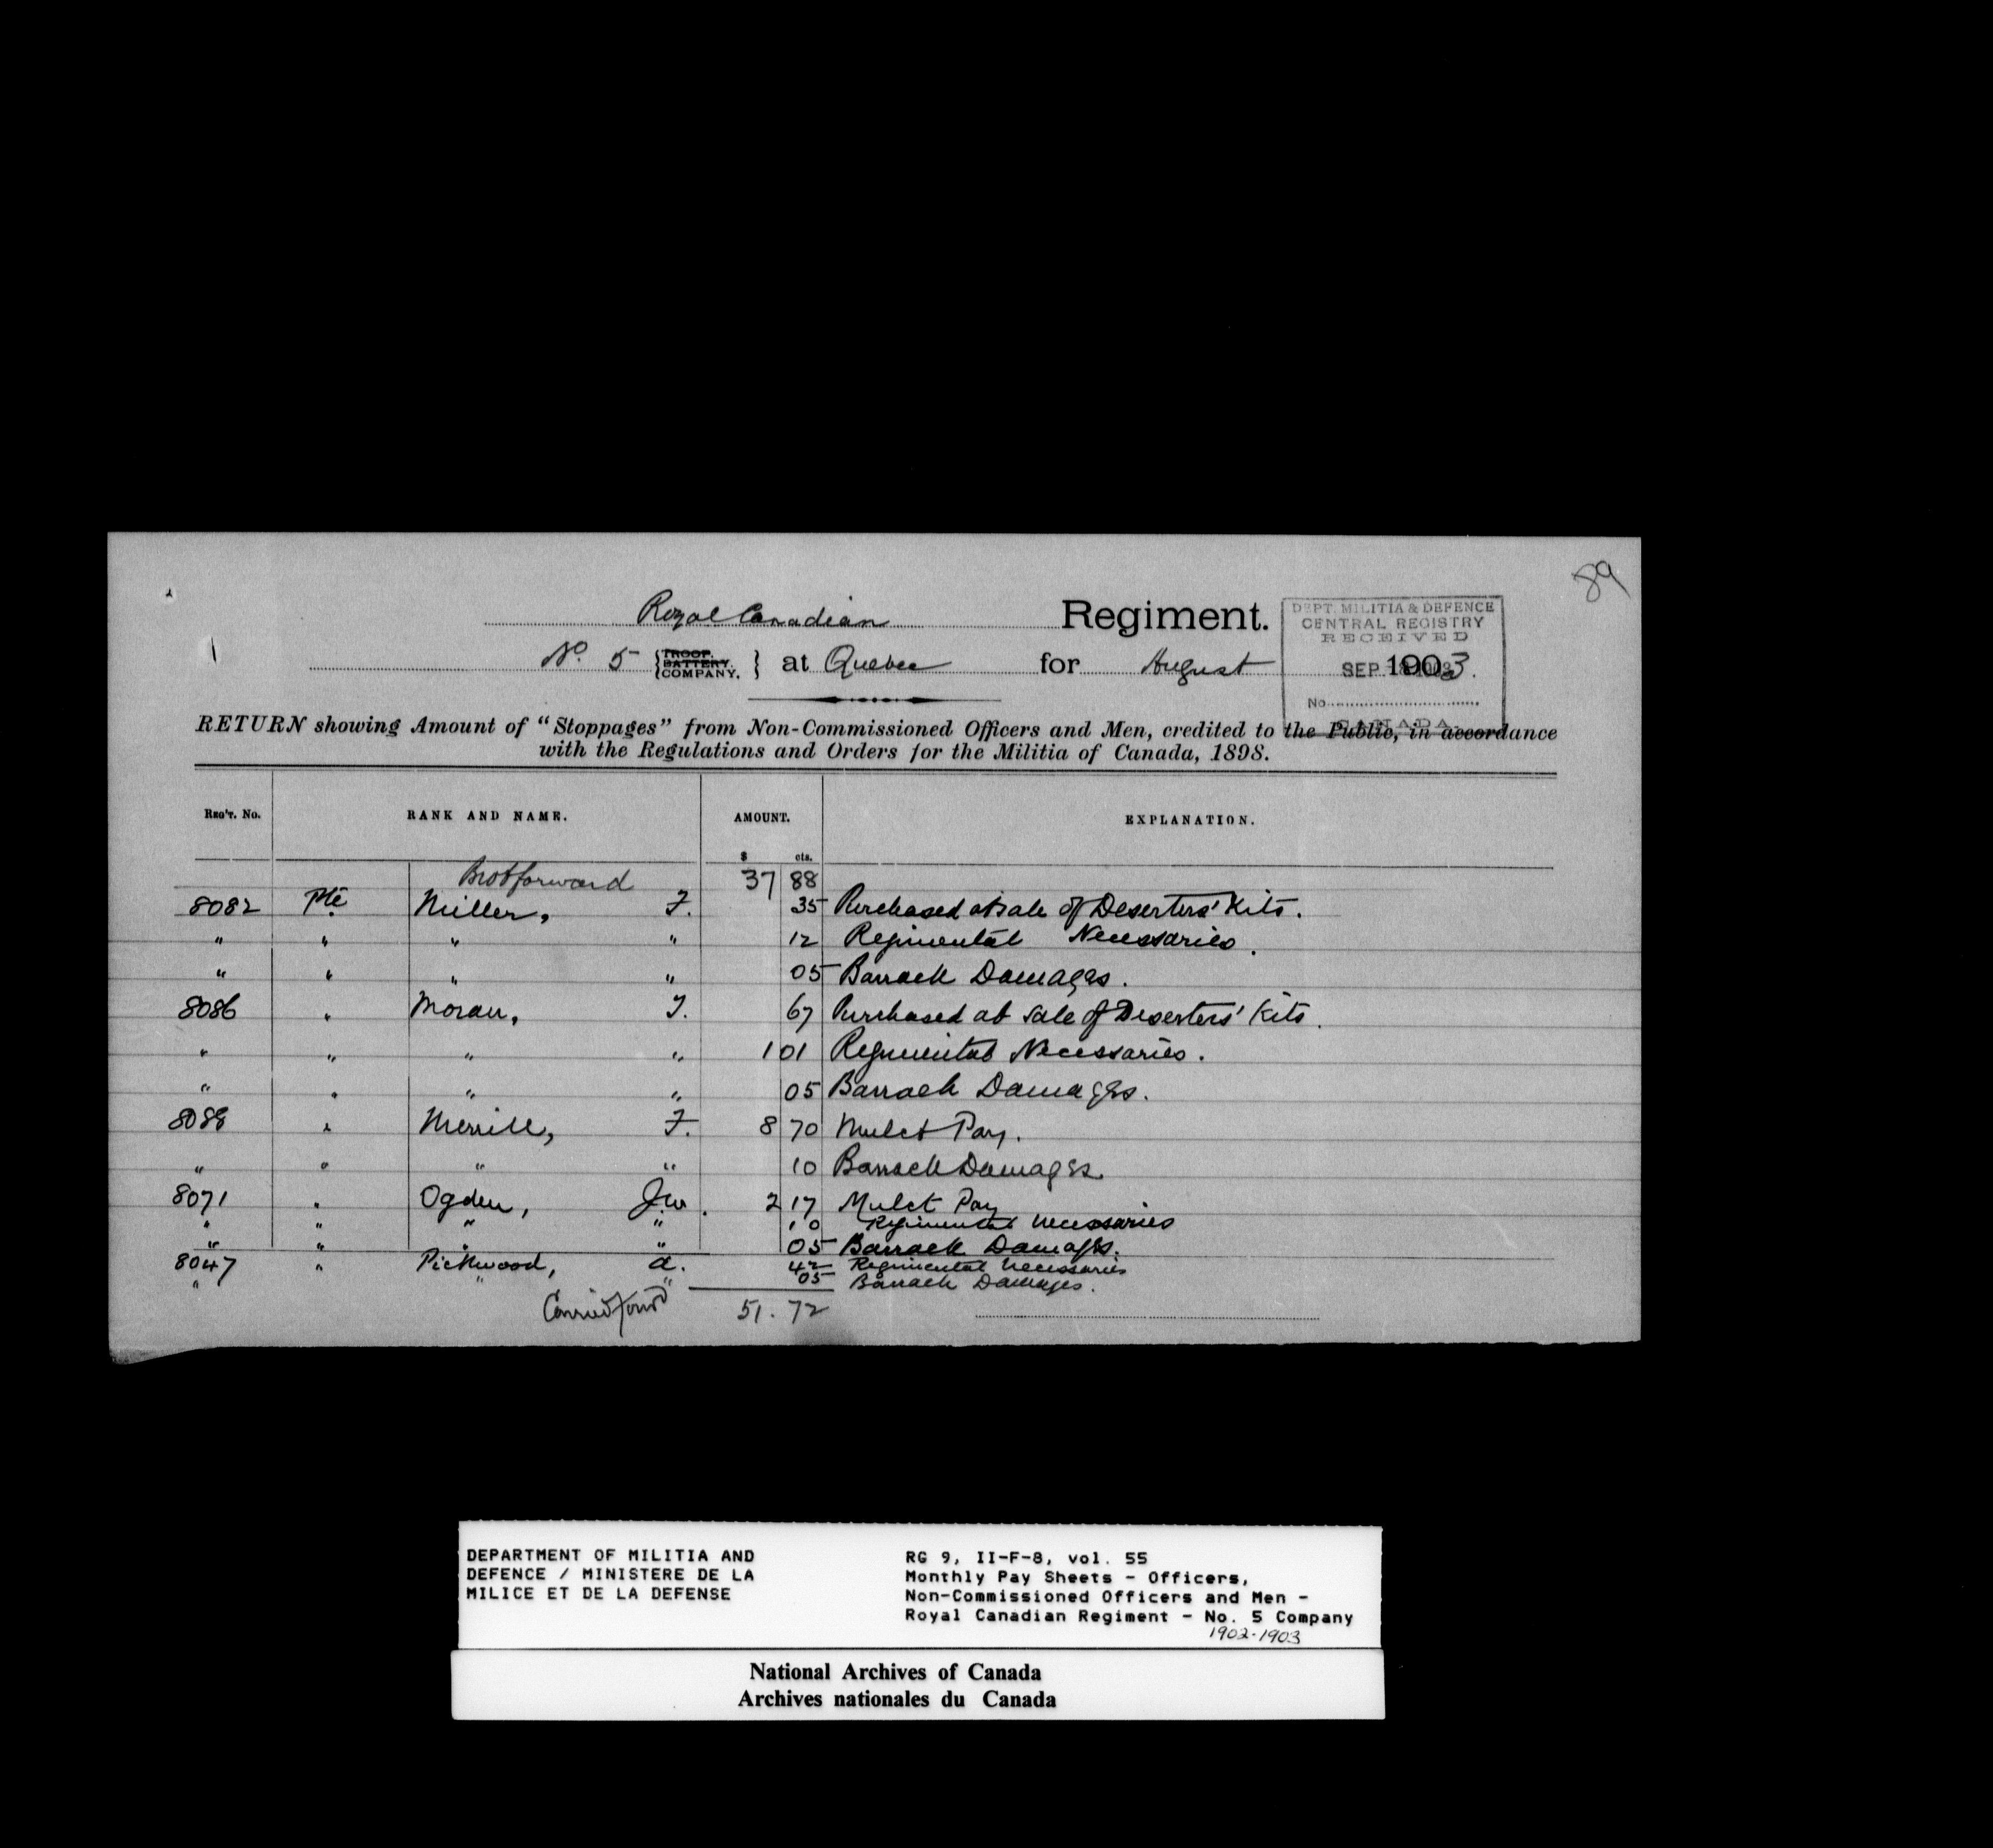 89
Royal Canadian Regiment.
No. 5 {TROOP. BATTERY. COMPANY.} at Quebec for August 1903.
DEPT. MILITIA & DEFENCE
CENTRAL REGISTRY
RECEIVED
SEP
No
CANADA
RETURN showing Amount of "Stoppages" from Non-Commissioned Officers and Men, credited to the Public, in accordance
with the Regulations and Orders for the Militia of Canada, 1898.
REG'T. No. RANK AND NAME. AMOUNT. EXPLANATION.
$ cts.
Brot forward 37 88
8082 Pte Miller, F. 35 Purchased at sale of Deserters' Kits.
" " " " 12 Regimental Necessaries.
" " " " 05 Barrack Damages.
8086 " Moran, J. 67 Purchased at Sale of Deserters' Kits.
" " " " 1 01 Regimental Necessaries.
" " " " 05 Barrack Damages.
8088 " Merrill, F. 8 70 Mulct Pay.
" " " " 10 Barrack Damages.
8071 " Ogden, J.W. 2 17 Mulct Pay
" " " " 10 Regimental Necessaries
" " " " 05 Barrack Damages.
8047 " Pickwood, A. 42 Regimental Necessaries
" " " 05 Barrack Damages.
Carried forwd 51.72
DEPARTMENT OF MILITIA AND
DEFENCE / MINISTERE DE LA
MILICE ET DE LA DEFENSE
RG 9, II-F-8, vol. 55
Monthly Pay Sheets - Officers,
Non-Commissioned Officers and Men -
Royal Canadian Regiment - No. 5 Company
1902-1903
National Archives of Canada
Archives nationales du Canada